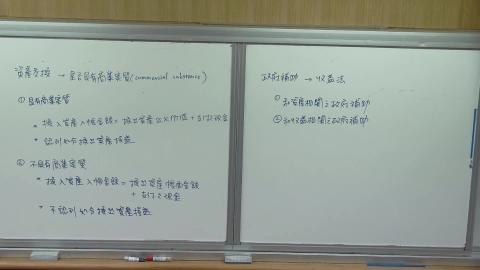 資產交換 → 是否具有商業實質(commercial substance)
① 具有商業實質
• 換入資產入帳金額 = 換出資產公允價值 + 支付現金
• 認列處分換出資產損益
② 不具有商業實質
• 換入資產入帳金額 = 換出資產帳面金額
+ 支付之現金
• 不認列處分換出資產損益
政府補助 → 收益法
① 和資產相關之政府補助
② 和收益相關之政府補助